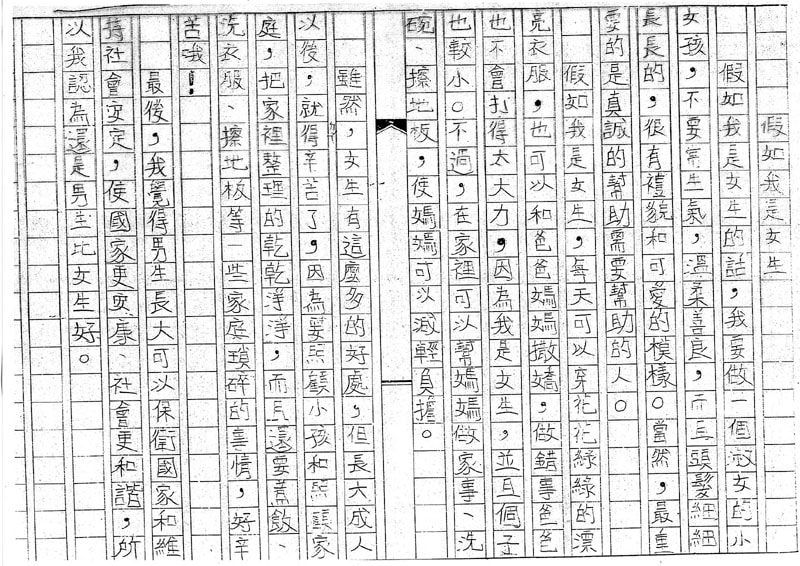 假如我是女生
假如我是女生的話，我要做一個淑女的小
女孩，不要常生氣，溫柔善良，而且頭髮細細
長長的，很有禮貌和可愛的模樣。當然，最重
要的是真誠的幫助需要幫助的人。
假如我是女生，每天可以穿花花綠綠的漂
亮衣服，也可以和爸爸媽媽撒嬌，做錯事爸爸
也不會打得太大力，因為我是女生，並且個子
也較小。不過，在家裡可以幫媽媽做家事、洗
碗、擦地板，使媽媽可以減輕負擔。
雖然，女生有這麼多的好處，但長大成人
以後，就得辛苦了，因為要照顧小孩和照顧家
庭，把家裡整理的乾乾淨淨，而且還要煮飯、
洗衣服、擦地板等一些家庭瑣碎的事情，好辛
苦哦！
最後，我覺得男生長大可以保衛國家和維
持社會安定，使國家更安康、社會更和諧，所
以我認為還是男生比女生好。